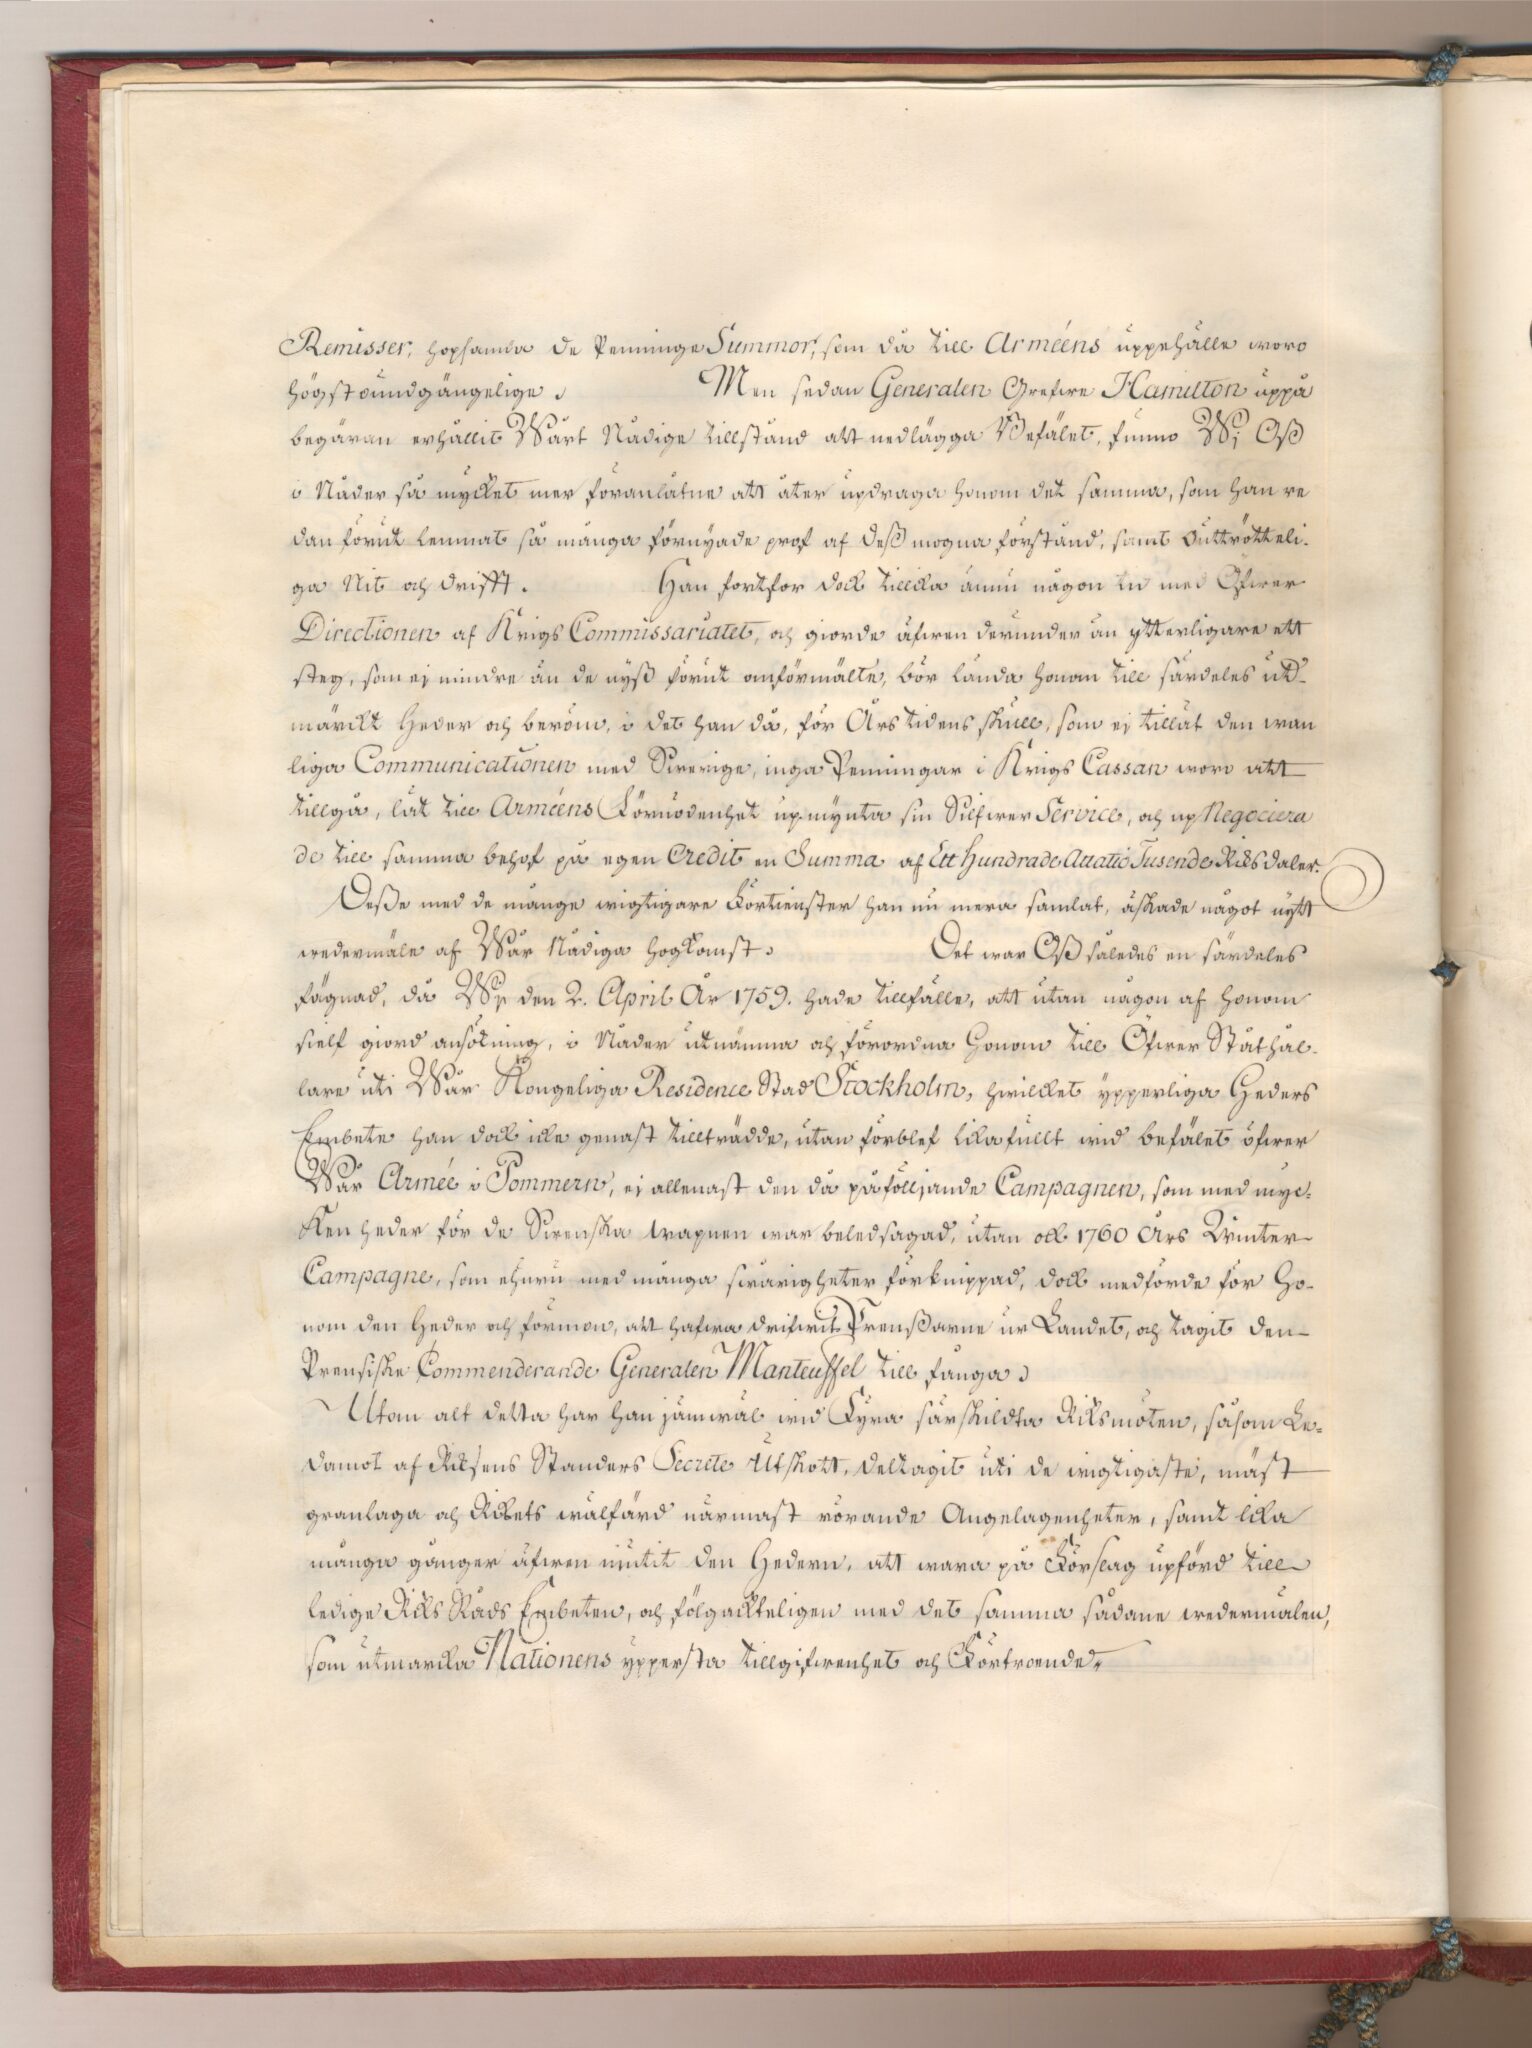 Remisser, hopsamla de Penninge Summor, som då till Arméens uppehälle woro
högstoundgängelige.  Men sedan Generalen Grefwe Hamilton uppå
begäran erhållit Wårt Nådige tillstånd att nedlägga Befälet, funno Wj Oß
i Nåder så mycket mer föranlåtne att åter updraga honom det samma, som han re
dan förut lemnat så många förnyade prof af deß mogna förstånd, samt outtrötteli-
ga Nit och drifft.  Han fortfor dock tillika ännu någon tid med Öfwer
Directionen af Krigs Commissariatet, och giorde äfwen derunder än ytterligare ett
steg, som ej mindre än de nyß förut omförmälte, bör lända honom till särdeles ut-
märckt heder och beröm, i det han då, för Årstidens skull, som ej tillät den wan
liga Communicationen med Swerige, inga Penningar i Krigs Cassan woro att
tillgå, lät till Arméens Förnödenhet upmynta sin Silfwer Service, och up Negociera
de till samma behof på egen Credit en Summa af Ett Hundrade Attatio Tusende Riksdaler.
Deße med de månge wigtigare Förtienster han nu mera samlat, äskade något nytt
wedermäle af Wår Nådiga hogkomst.  Det war Oß således en särdeles
fägnad, då Wj den 2. April År 1759. hade tillfälle, att utan någon af honom
sielf giord ansökning, i Nåder utnämna och förordna Honom till Öfwer Ståthål-
lare uti Wår Kongeliga Residence Stad Stockholm, hwilcket ypperliga Heders
Embete han dock icke genast tillträdde, utan förblef lika fullt wid befälet öfwer
Wår Armée i Pommern, ej allenast den då påföljande Campagnen, som med myc-
ken heder för de Swenska wapnen war beledsagad, utan ock 1760 Års Winter
Campagne, som ehuru med många swårigheter förknippad, dock medförde för Ho-
nom den Heder och förmon, att hafwa drifwit Preußarne ur Landet, och tagit den
Preusiske Commenderande Generalen Manteuffel till fånga.
Utom alt detta har han jämwäl wid Fyra särskildta Riksmöten, såsom Le-
damot af Riksens Ständers Secrete Utskott, deltagit uti de wigtigaste, mäst
granlaga och Rikets wälfärd närmast rörande Angelägenheter, samt lika
många gånger äfwen niutit den Hedern, att wara på Förslag upförd till
ledige Riks Råds Embeten, och fölgackteligen med det samma sådane wedermälen,
som utmärcka Nationens yppersta tillgifwenhet och Förtroende.